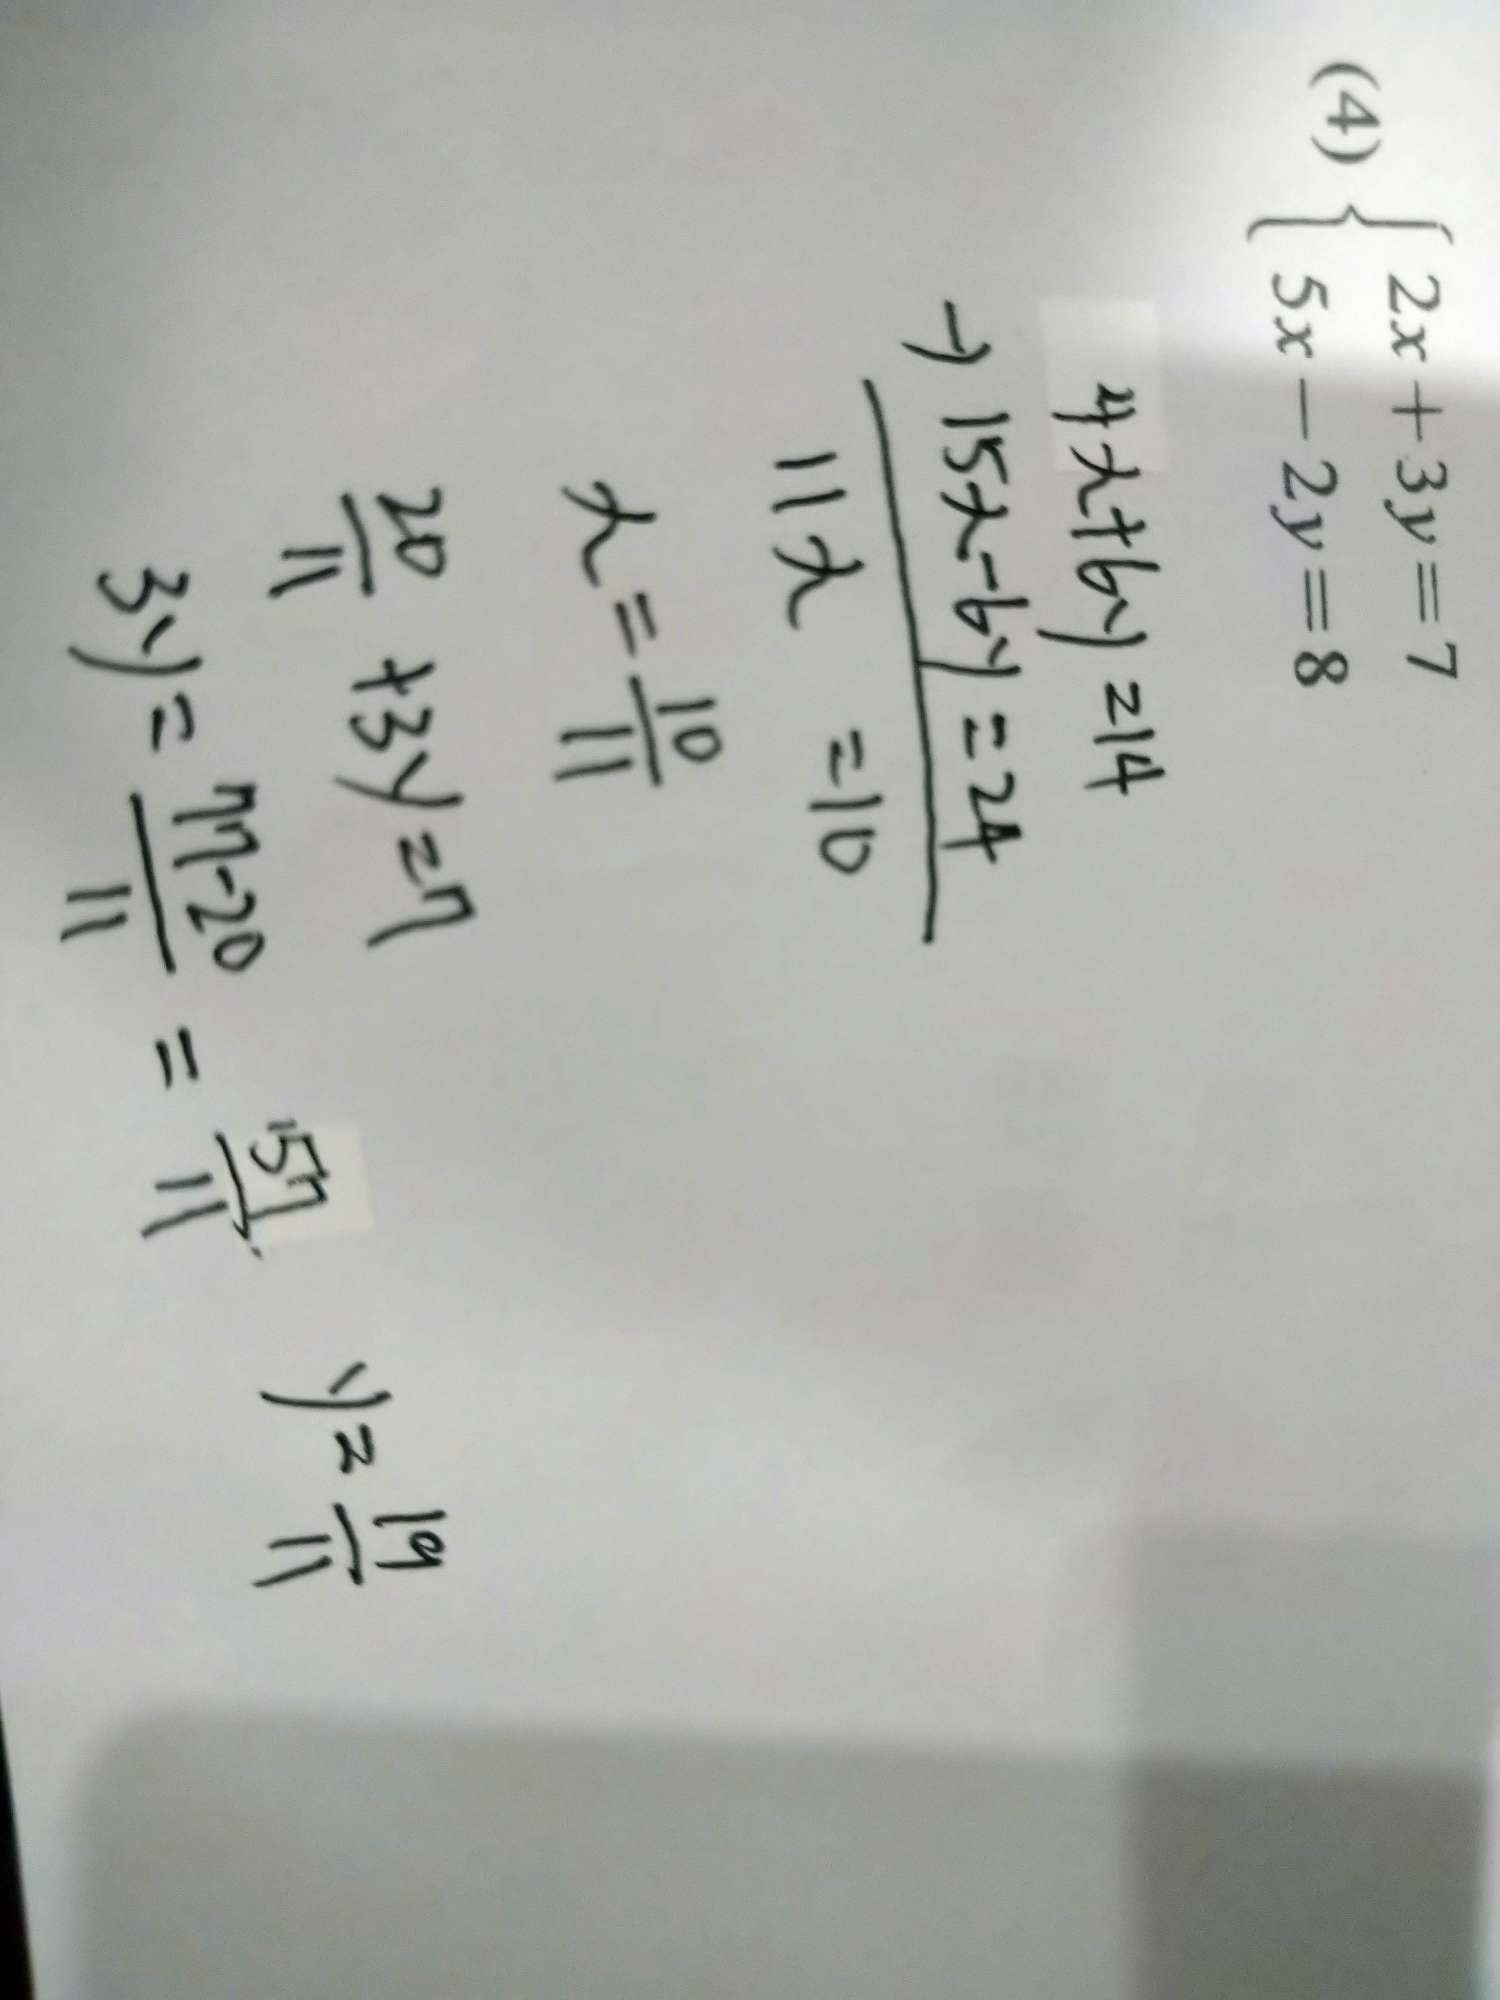 (4) { 2x + 3y = 7
5x − 2y = 8
4x+6y=14
-) 15x-6y=24
11x =10
x = 10/11
20/11 +3y=7
3y = 77-20/11 = 57/11 y = 19/11